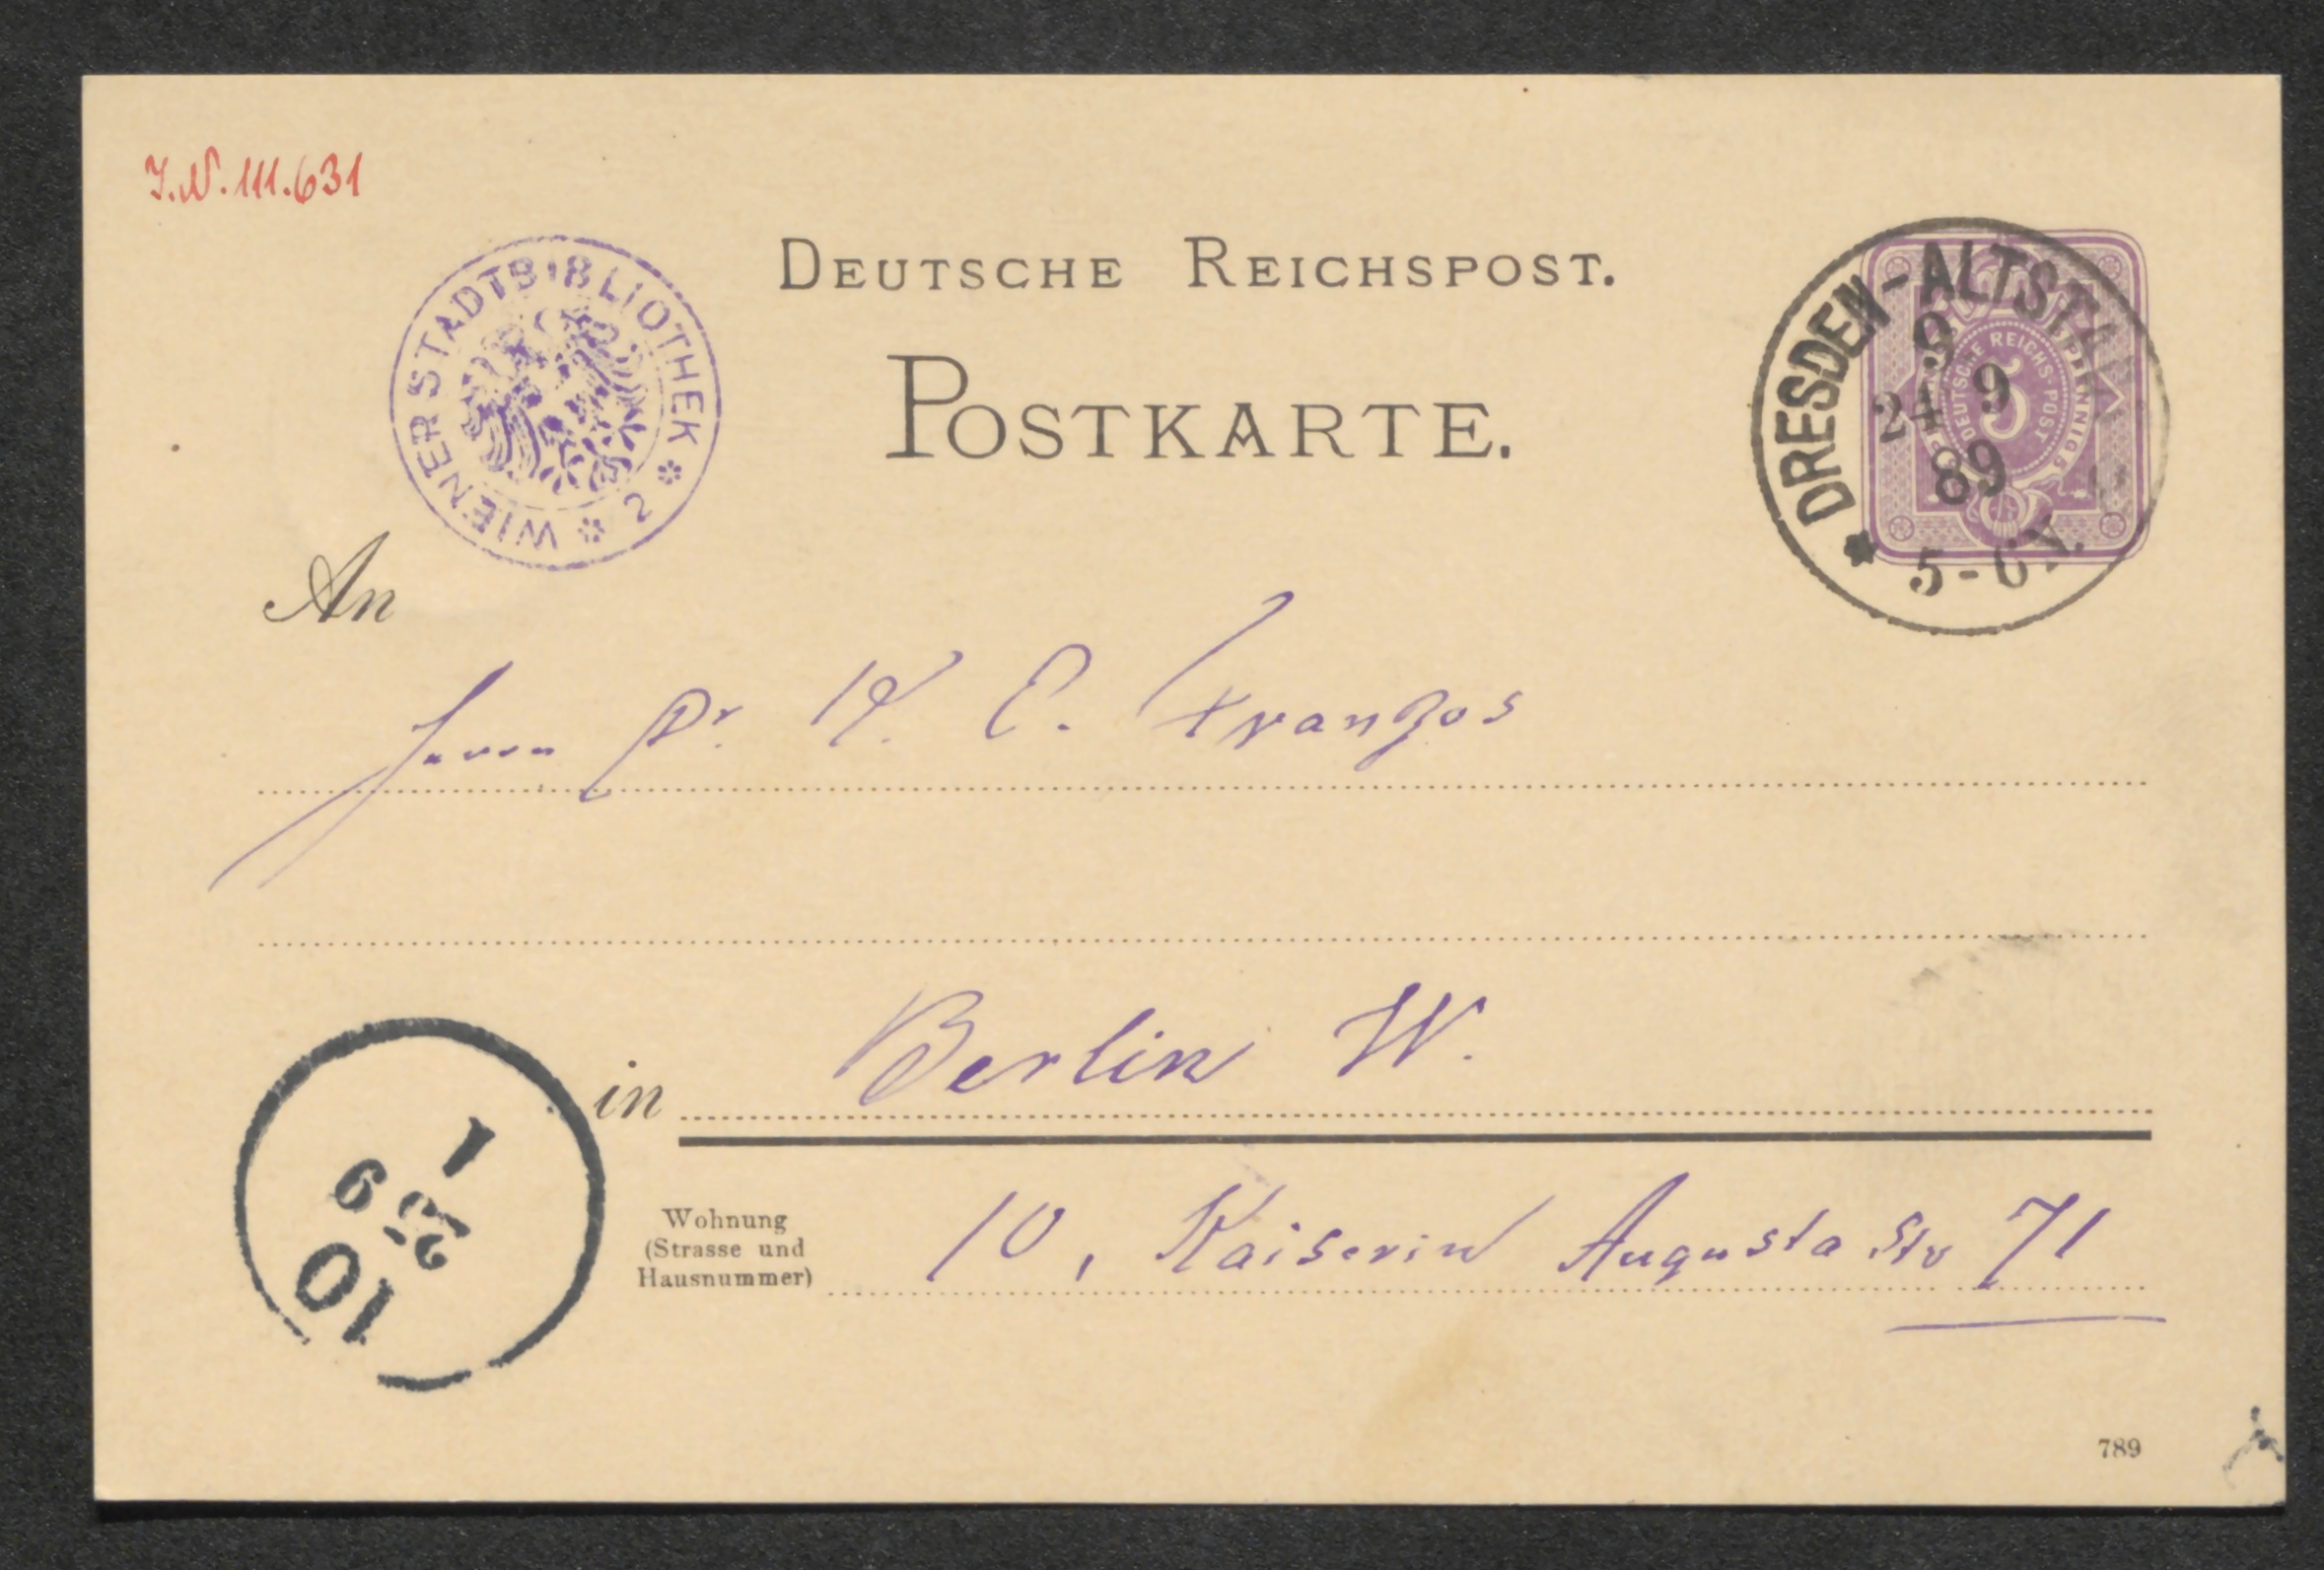 J.N. 111.631
WIENER STADTBIBLIOTHEK * 2 *
DEUTSCHE REICHSPOST.
POSTKARTE.
DRESDEN-ALTSTADT
9
24 9
89
5-6 V.
DEUTSCHE REICHS-POST
5
PFENNIG
An
Herrn Dr. K. E. Franzos
in Berlin W.
1
25 9
10
Wohnung
(Strasse und
Hausnummer)
10, Kaiserin Augusta Str 71
789